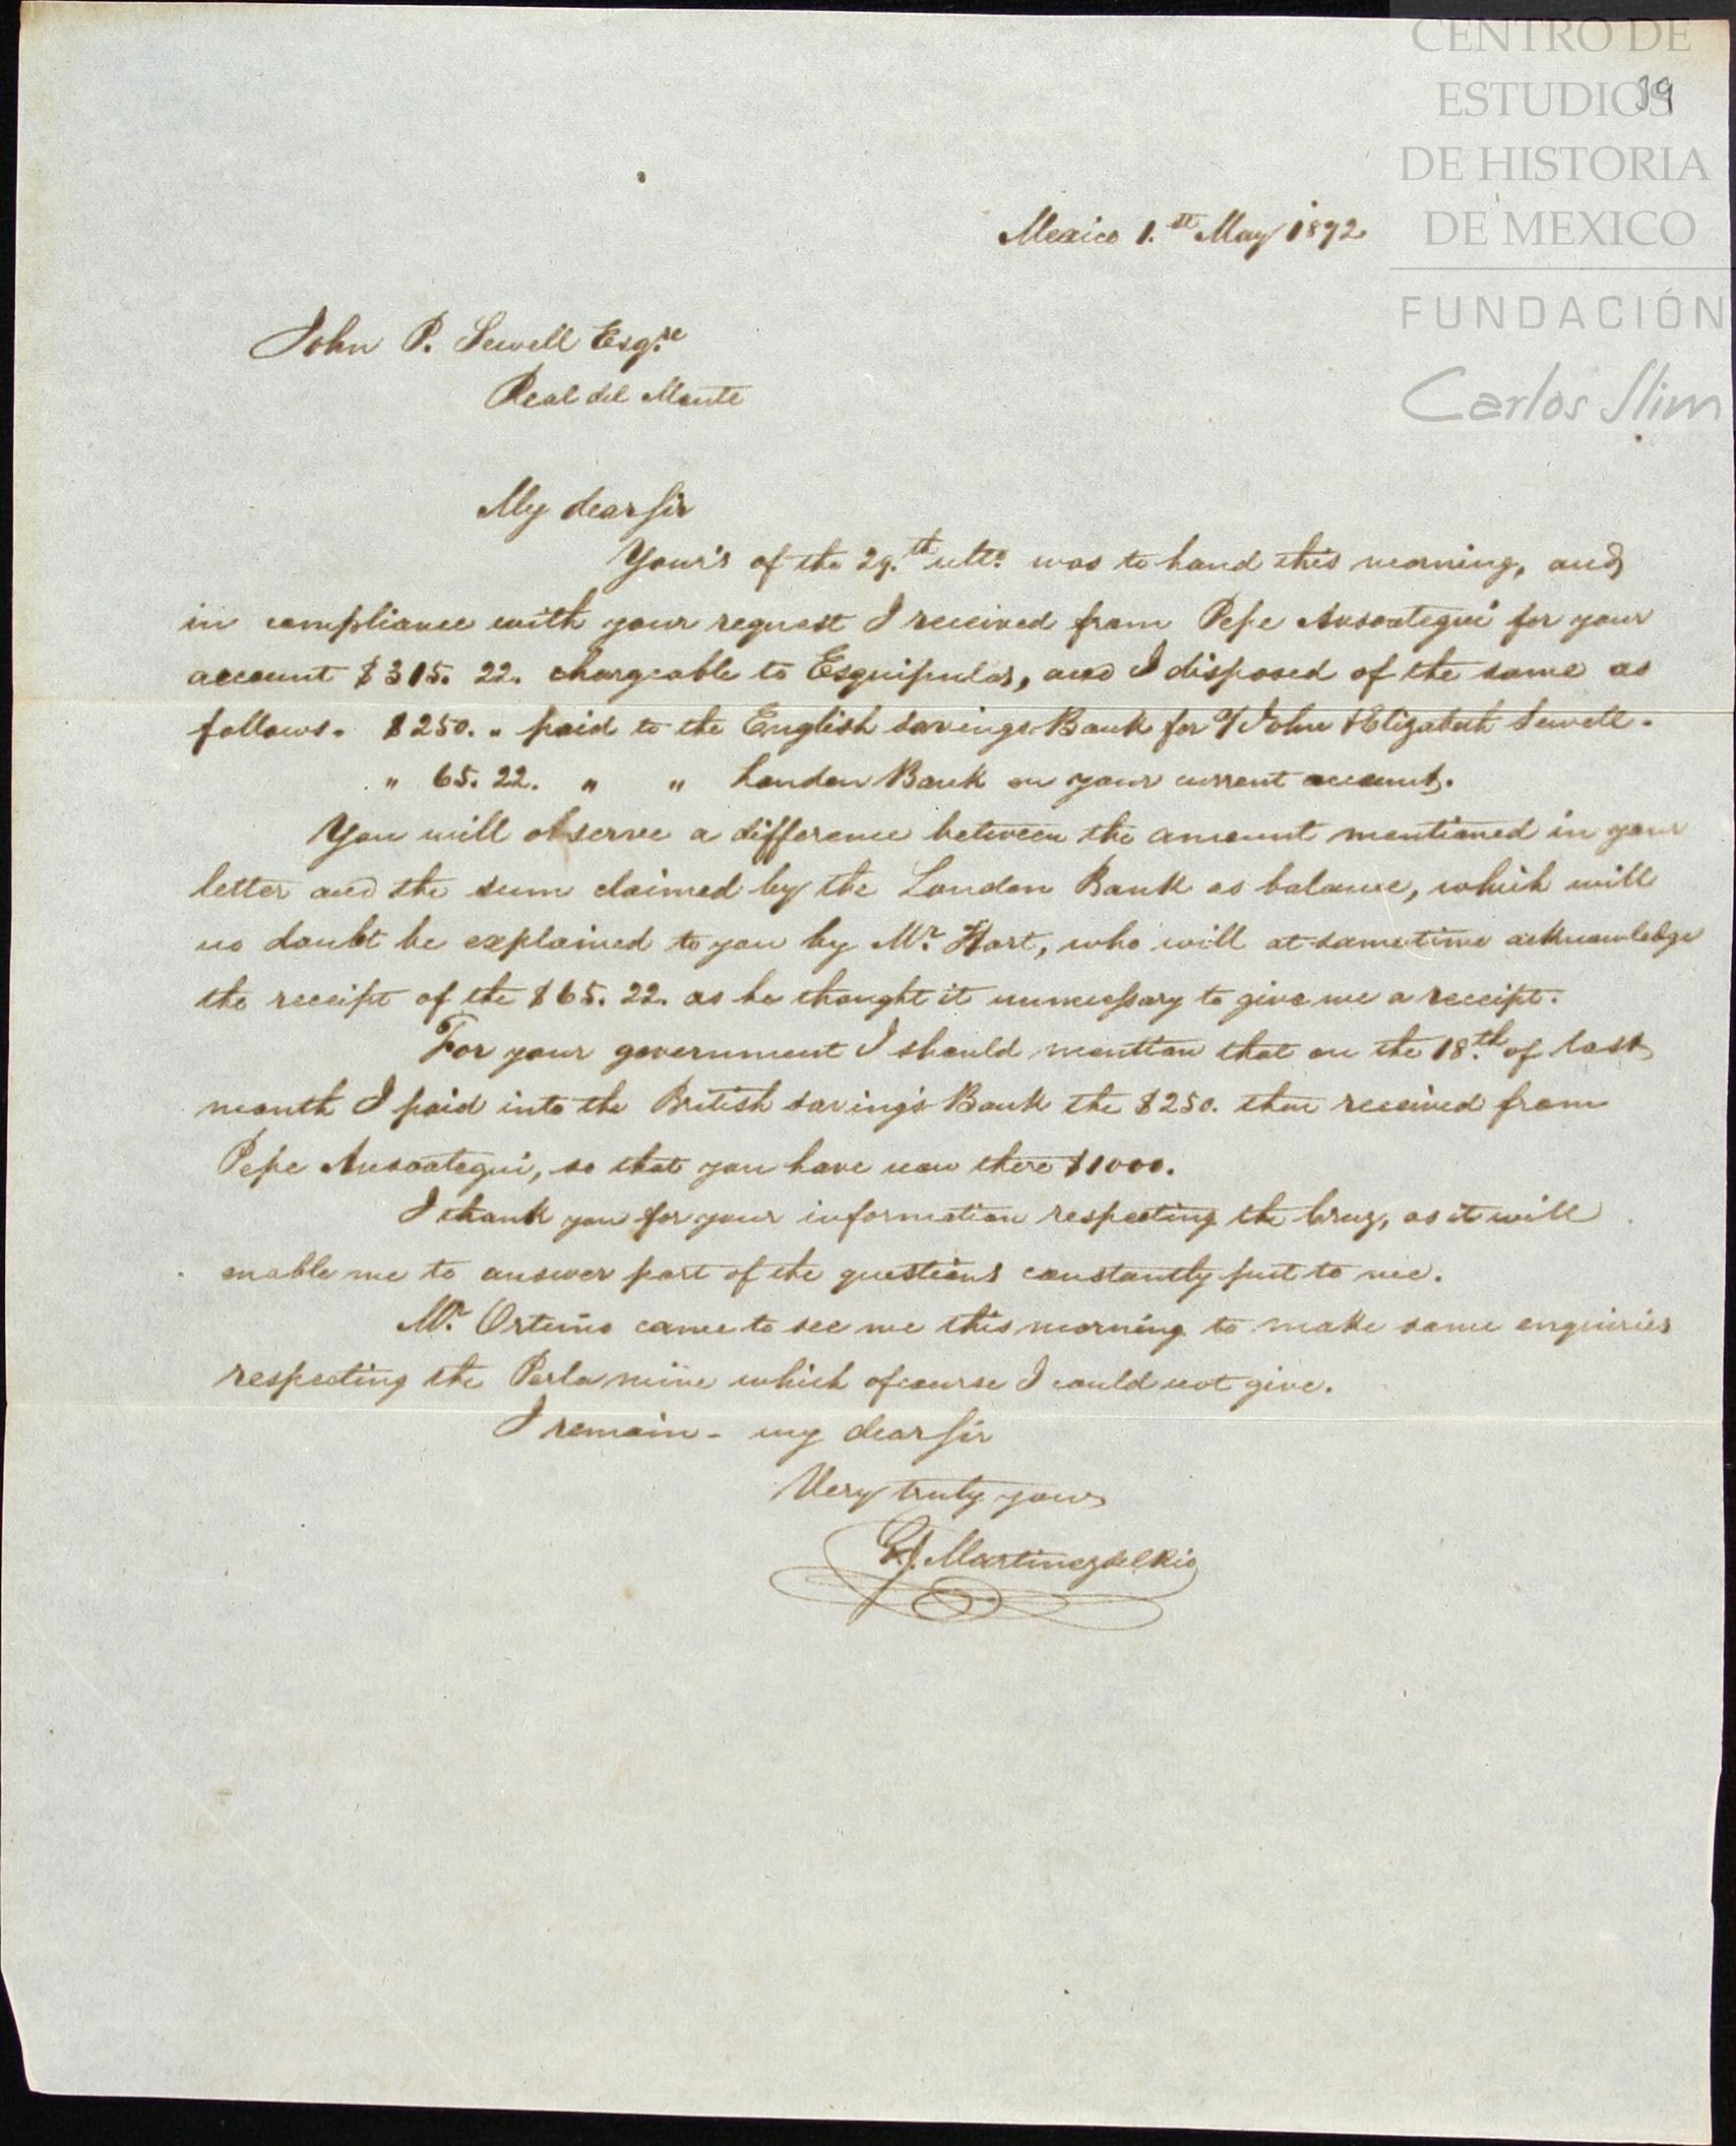 CENTRO DE
ESTUDIOS
39
DE HISTORIA
DE MEXICO
FUNDACIÓN
Carlos Slim
Mexico 1.st May 1872
John P. Sewell Esq.re
Real del Monte
My dear Sir
Your's of the 29.th ulto. was to hand this morning, and
in compliance with your request I received from Pepe Ansoategui for your
account $315. 22. chargeable to Esquipulas, and I disposed of the same as
follows. $250. " paid to the English savings Bank for a/ John & Elizabeth Sewell.
" 65. 22. " " London Bank on your current account.
You will observe a difference between the amount mentioned in your
letter and the sum claimed by the London Bank as balance, which will
no doubt be explained to you by Mr. Hort, who will at same time acknowledge
the receipt of the $65. 22. as he thought it unnecessary to give me a receipt.
For your government I should mention that on the 18.th of last
month I paid into the British saving's Bank the $250. then received from
Pepe Ansoategui, so that you have now there $1000.
I thank you for your information respecting the Cruz, as it will
enable me to answer part of the questions constantly put to me.
Mr. Ortuño came to see me this morning to make some enquiries
respecting the Perla mine which of course I could not give.
I remain - my dear Sir
Very truly yours
G. J. Martinez del Rio